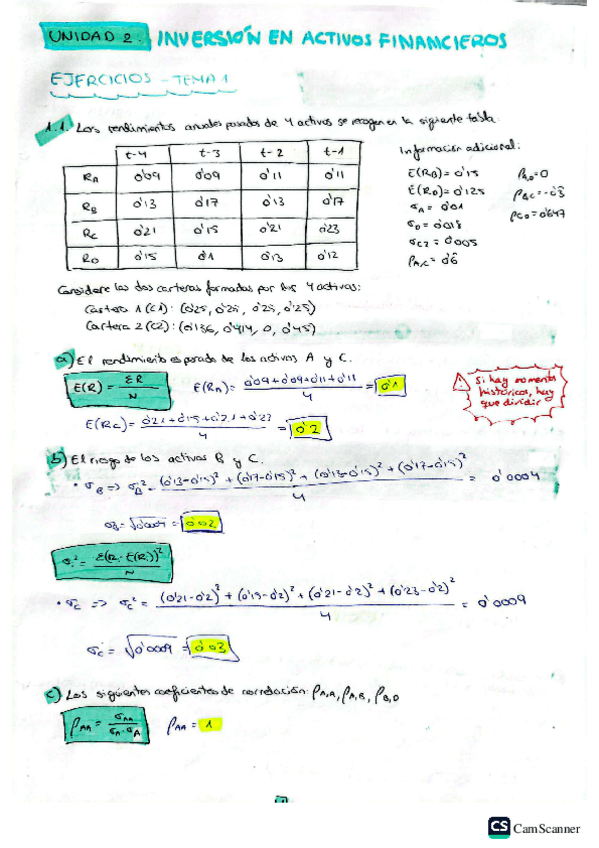 UNIDAD 2: INVERSIÓN EN ACTIVOS FINANCIEROS
EJERCICIOS - TEMA 1
1.1. Los rendimientos anuales pasados de 4 activos se recogen en la siguiente tabla:
t-4 t-3 t-2 t-1
RA 0'09 0'09 0'11 0'11
RB 0'13 0'17 0'13 0'17
RC 0'21 0'15 0'21 0'23
RD 0'15 0'1 0'13 0'12
Información adicional:
E(RB)= 0'15
E(RD)= 0'125
σA = 0'01
σD = 0'018
σC2 = 0'005
ρA,C = 0'6
ρA,D = 0
ρB,C = -0'3
ρC,D = 0'647
Considere las dos carteras formadas por los 4 activos:
Cartera 1 (C1): (0'25, 0'25, 0'25, 0'25)
Cartera 2 (C2): (0'136, 0'414, 0, 0'45)
a) El rendimiento esperado de los activos A y C.
E(R) = ΣR / N
E(RA) = 0'09+0'09+0'11+0'11 / 4 = 0'1
E(RC) = 0'21+0'15+0'21+0'23 / 4 = 0'2
Si hay momentos
históricos, hay
que dividir
b) El riesgo de los activos B y C.
• σB => σB² = (0'13-0'15)² + (0'17-0'15)² + (0'13-0'15)² + (0'17-0'15)² / 4 = 0'0004
σB = √0'0004 = 0'02
σi² = Σ(Ri - E(Ri))² / N
• σC => σC² = (0'21-0'2)² + (0'15-0'2)² + (0'21-0'2)² + (0'23-0'2)² / 4 = 0'0009
σC = √0'0009 = 0'03
c) Los siguientes coeficientes de correlación: ρA,A, ρA,B, ρB,D
ρAA = σAA / σA · σA
ρAA = 1
CS CamScanner